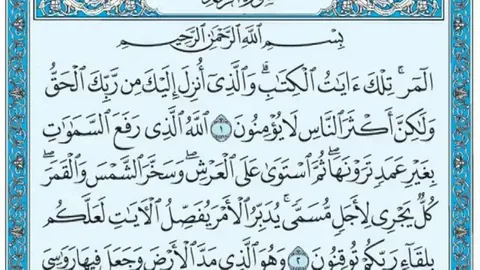 بِسْمِ اللَّهِ الرَّحْمَٰنِ الرَّحِيمِ
الٓمٓر ۚ تِلْكَ ءَايَٰتُ الْكِتَٰبِ ۗ وَالَّذِىٓ أُنزِلَ إِلَيْكَ مِن رَّبِّكَ الْحَقُّ
وَلَٰكِنَّ أَكْثَرَ النَّاسِ لَا يُؤْمِنُونَ ١ اللَّهُ الَّذِى رَفَعَ السَّمَٰوَٰتِ
بِغَيْرِ عَمَدٍ تَرَوْنَهَا ۖ ثُمَّ اسْتَوَىٰ عَلَى الْعَرْشِ ۖ وَسَخَّرَ الشَّمْسَ وَالْقَمَرَ ۖ
كُلٌّ يَجْرِى لِأَجَلٍ مُّسَمًّى ۚ يُدَبِّرُ الْأَمْرَ يُفَصِّلُ الْآيَٰتِ لَعَلَّكُم
بِلِقَآءِ رَبِّكُمْ تُوقِنُونَ ٢ وَهُوَ الَّذِى مَدَّ الْأَرْضَ وَجَعَلَ فِيهَا رَوَٰسِىَ